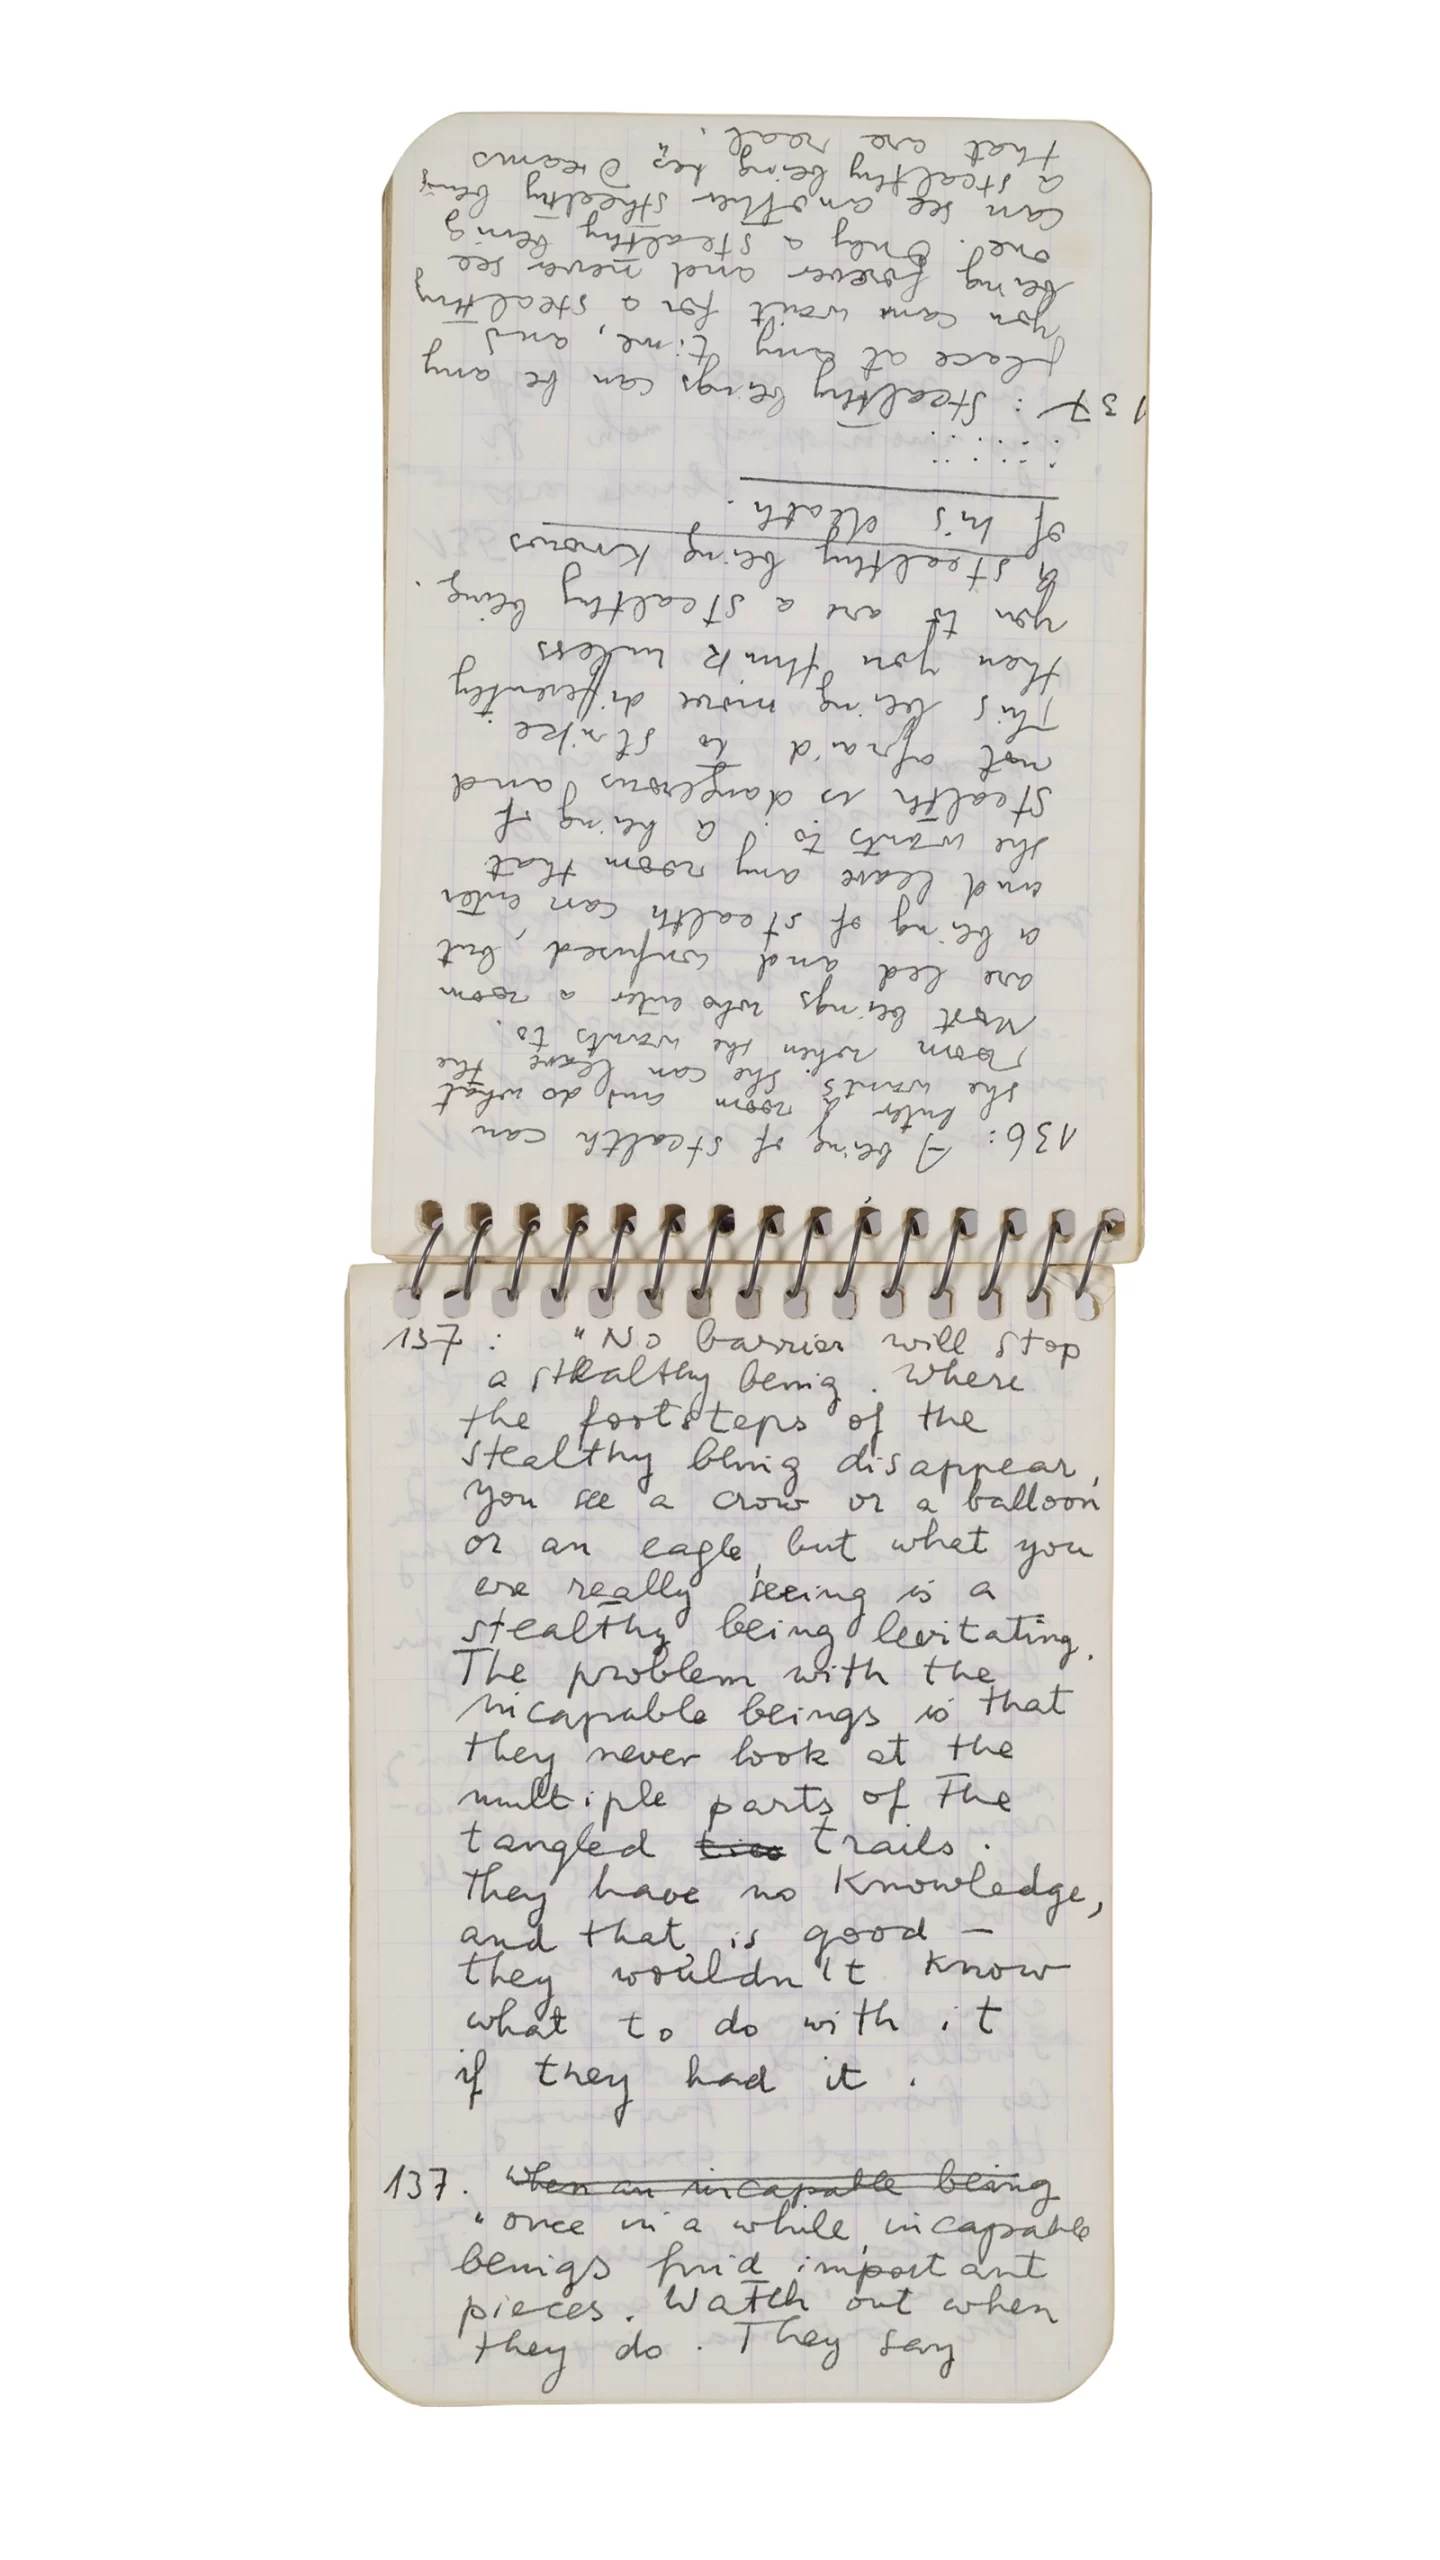 136: A being of stealth can
enter a room and do what
she wants. She can leave the
room when she wants to.
Most beings who enter a room
are led and confused, but
a being of stealth can enter
and leave any room that
she wants to. A being of
stealth is dangerous and
not afraid to strike.
This being move differently
then you think unless
you to are a stealthy being.
A stealthy being knows
of his death.
137: Stealthy beings can be any
place at any time, and
you can wait for a stealthy
being forever and never see
one. Only a stealthy being
can see another stealthy being.
a stealthy being has Dreams
that are real.
137: "No barrier will stop
a stealthy being. Where
the footsteps of the
stealthy being disappear,
you see a crow or a balloon
or an eagle, but what you
are really seeing is a
stealthy being levitating.
The problem with the
incapable beings is that
they never look at the
multiple parts of the
tangled trails.
they have no knowledge,
and that is good —
they wouldn't know
what to do with it
if they had it.
137. "When an incapable being
"once in a while, incapable
beings find important
pieces. Watch out when
they do. They say